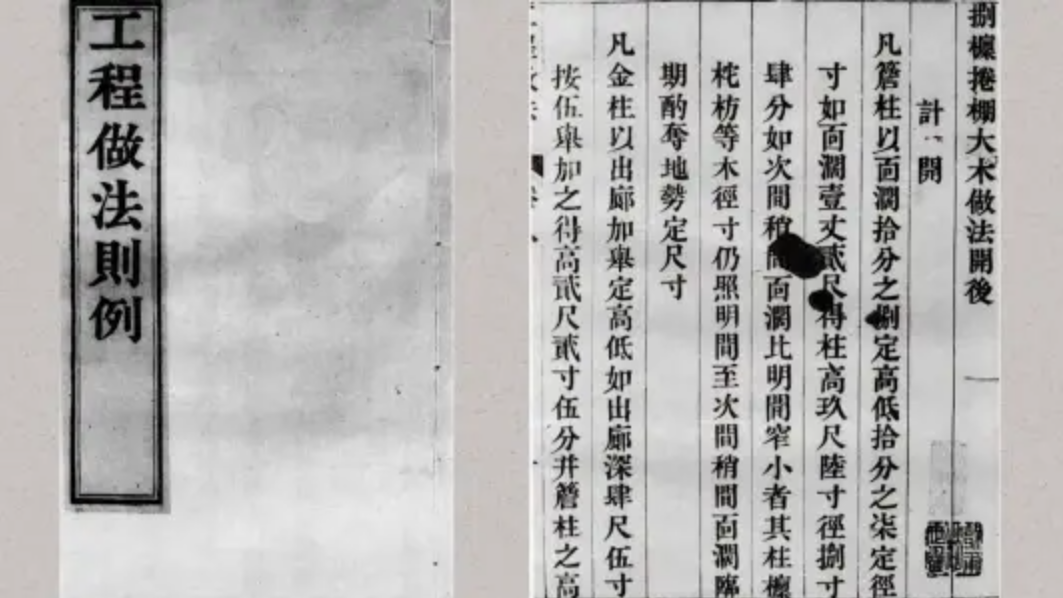 工程做法則例
捌檁捲棚大木做法開後
計開
凡簷柱以面濶拾分之捌定高低拾分之柒定徑
寸如面濶壹丈貳尺得柱高玖尺陸寸徑捌寸
肆分如次間稍間面濶比明間窄小者其柱檁
柁枋等木徑寸仍照明間至次間稍間面濶臨
期酌奪地勢定尺寸
凡金柱以出廊加舉定高低如出廊深肆尺伍寸
按伍舉加之得高貳尺貳寸伍分并簷柱之高